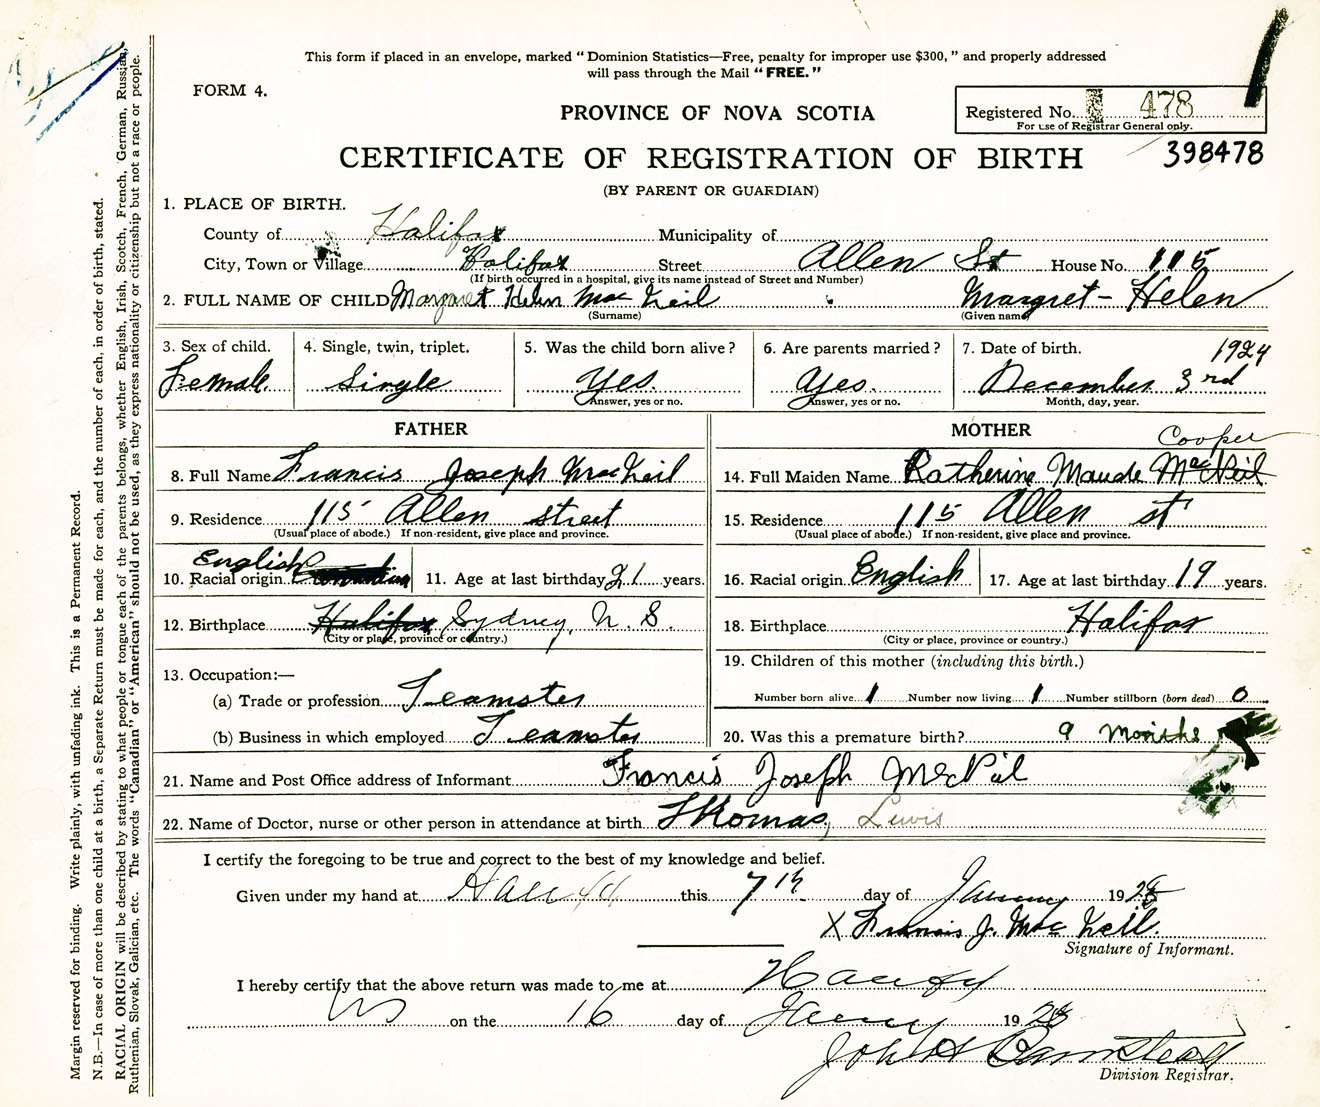 This form if placed in an envelope, marked "Dominion Statistics—Free, penalty for improper use $300," and properly addressed
will pass through the Mail "FREE."
FORM 4.
PROVINCE OF NOVA SCOTIA
Registered No. 478
For use of Registrar General only.
CERTIFICATE OF REGISTRATION OF BIRTH
398478
(BY PARENT OR GUARDIAN)
1. PLACE OF BIRTH.
County of Halifax Municipality of
City, Town or Village Halifax Street Allen St House No. 115
(If birth occurred in a hospital, give its name instead of Street and Number)
2. FULL NAME OF CHILD Margaret Helen Mac Neil Margret - Helen
(Surname) (Given name)
3. Sex of child. 4. Single, twin, triplet. 5. Was the child born alive? 6. Are parents married? 7. Date of birth. 1924
Female Single Yes. Yes. December 3rd
Answer, yes or no. Answer, yes or no. Month, day, year.
FATHER MOTHER
Cooper
8. Full Name Francis Joseph MacNeil 14. Full Maiden Name Katherine Maude McNeil
9. Residence 115 Allen street 15. Residence 115 Allen st
(Usual place of abode.) If non-resident, give place and province. (Usual place of abode.) If non-resident, give place and province.
English
10. Racial origin Canadian 11. Age at last birthday 21 years. 16. Racial origin English 17. Age at last birthday 19 years.
12. Birthplace Halifax Sydney, N. S. 18. Birthplace Halifax
(City or place, province or country.) (City or place, province or country.)
13. Occupation:— 19. Children of this mother (including this birth.)
(a) Trade or profession Teamster Number born alive 1 Number now living 1 Number stillborn (born dead) 0
(b) Business in which employed Teamster 20. Was this a premature birth? 9 Months
21. Name and Post Office address of Informant Francis Joseph McNeil
22. Name of Doctor, nurse or other person in attendance at birth Thomas, Lewis
I certify the foregoing to be true and correct to the best of my knowledge and belief.
Given under my hand at this 7th day of 19
X Francis J. Mac Neil
Signature of Informant.
I hereby certify that the above return was made to me at
on the 16 day of 19
John
Division Registrar.
Margin reserved for binding. Write plainly, with unfading ink. This is a Permanent Record.
N.B.—In case of more than one child at a birth, a Separate Return must be made for each, and the number of each, in order of birth, stated.
RACIAL ORIGIN will be described by stating to what people or tongue each of the parents belongs, whether English, Irish, Scotch, French, German, Russian,
Ruthenian, Slovak, Galician, etc. The words "Canadian" or "American" should not be used, as they express nationality or citizenship but not a race or people.